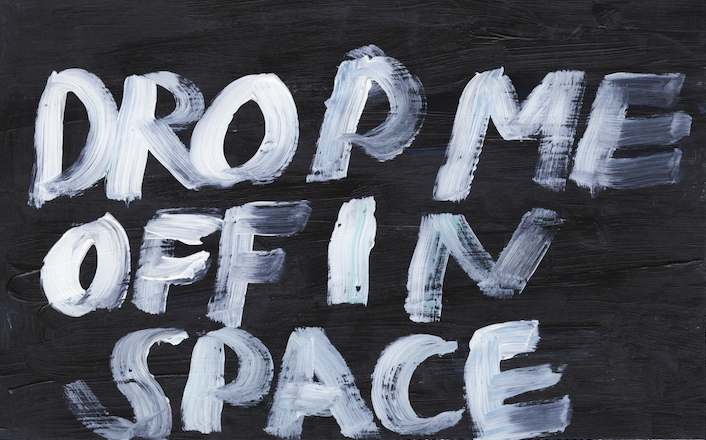 DROP ME
OFF IN
SPACE